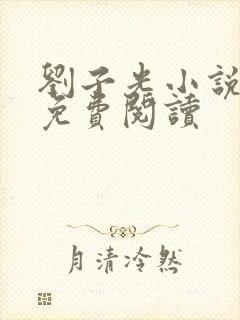 劉子光小説
免費閱讀
月清冷然